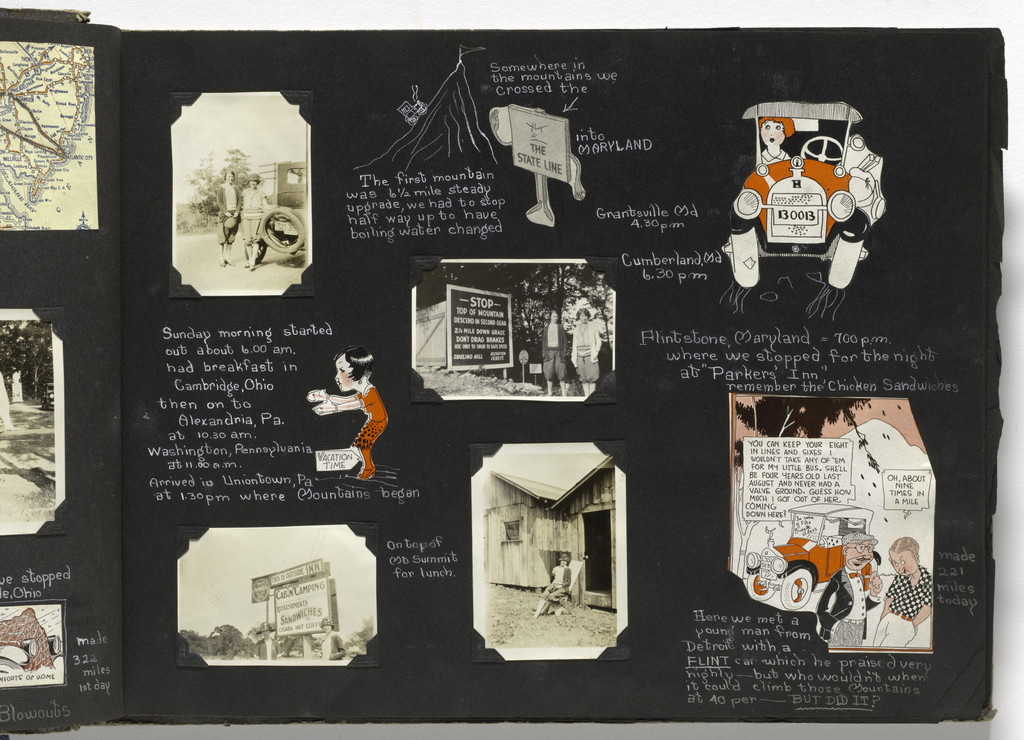 Somewhere in
the mountains we
crossed the
THE
STATE LINE
into
MARYLAND
The first mountain
was 6½ mile steady
upgrade, we had to stop
half way up to have
boiling water changed
Grantsville Md
4.30 pm
Cumberland, Md
6.30 pm
H
B0013
Flintstone, Maryland = 700 p.m.
where we stopped for the night
at "Parkers' Inn"
remember the Chicken Sandwiches
Sunday morning started
out about 6.00 am.
had breakfast in
Cambridge, Ohio
then on to
Alexandria, Pa.
at 10.30 am.
Washington, Pennsylvania
at 11.80 a.m.
Arrived in Uniontown, Pa
at 1.30 pm where Mountains began
VACATION
TIME
—STOP—
TOP OF MOUNTAIN
DESCEND IN SECOND GEAR
2¼ MILE DOWN GRADE
DON'T DRAG BRAKES
USE ONLY TO SLOW TO SAFE SPEED
On top of
Mt Summit
for lunch.
INN
CABIN CAMPING
REFRESHMENTS
SANDWICHES
YOU CAN KEEP YOUR EIGHT
IN LINES AND SIXES I
WOULDN'T TAKE ANY OF 'EM
FOR MY LITTLE BUS. SHE'LL
BE FOUR YEARS OLD LAST
AUGUST AND NEVER HAD A
VALVE GROUND. GUESS HOW
MUCH I GOT OUT OF HER
COMING
DOWN HERE?
OH, ABOUT
NINE
TIMES IN
A MILE
made
221
miles
today
Here we met a
young man from
Detroit with a
FLINT car which he praised very
highly — but who wouldn't when
it could climb those Mountains
at 40 per — BUT DID IT?
we stopped
Ohio
COMFORTS OF HOME
made
322
miles
1st day
Blowouts
TRENTON
MILLVILLE
ATLANTIC CITY